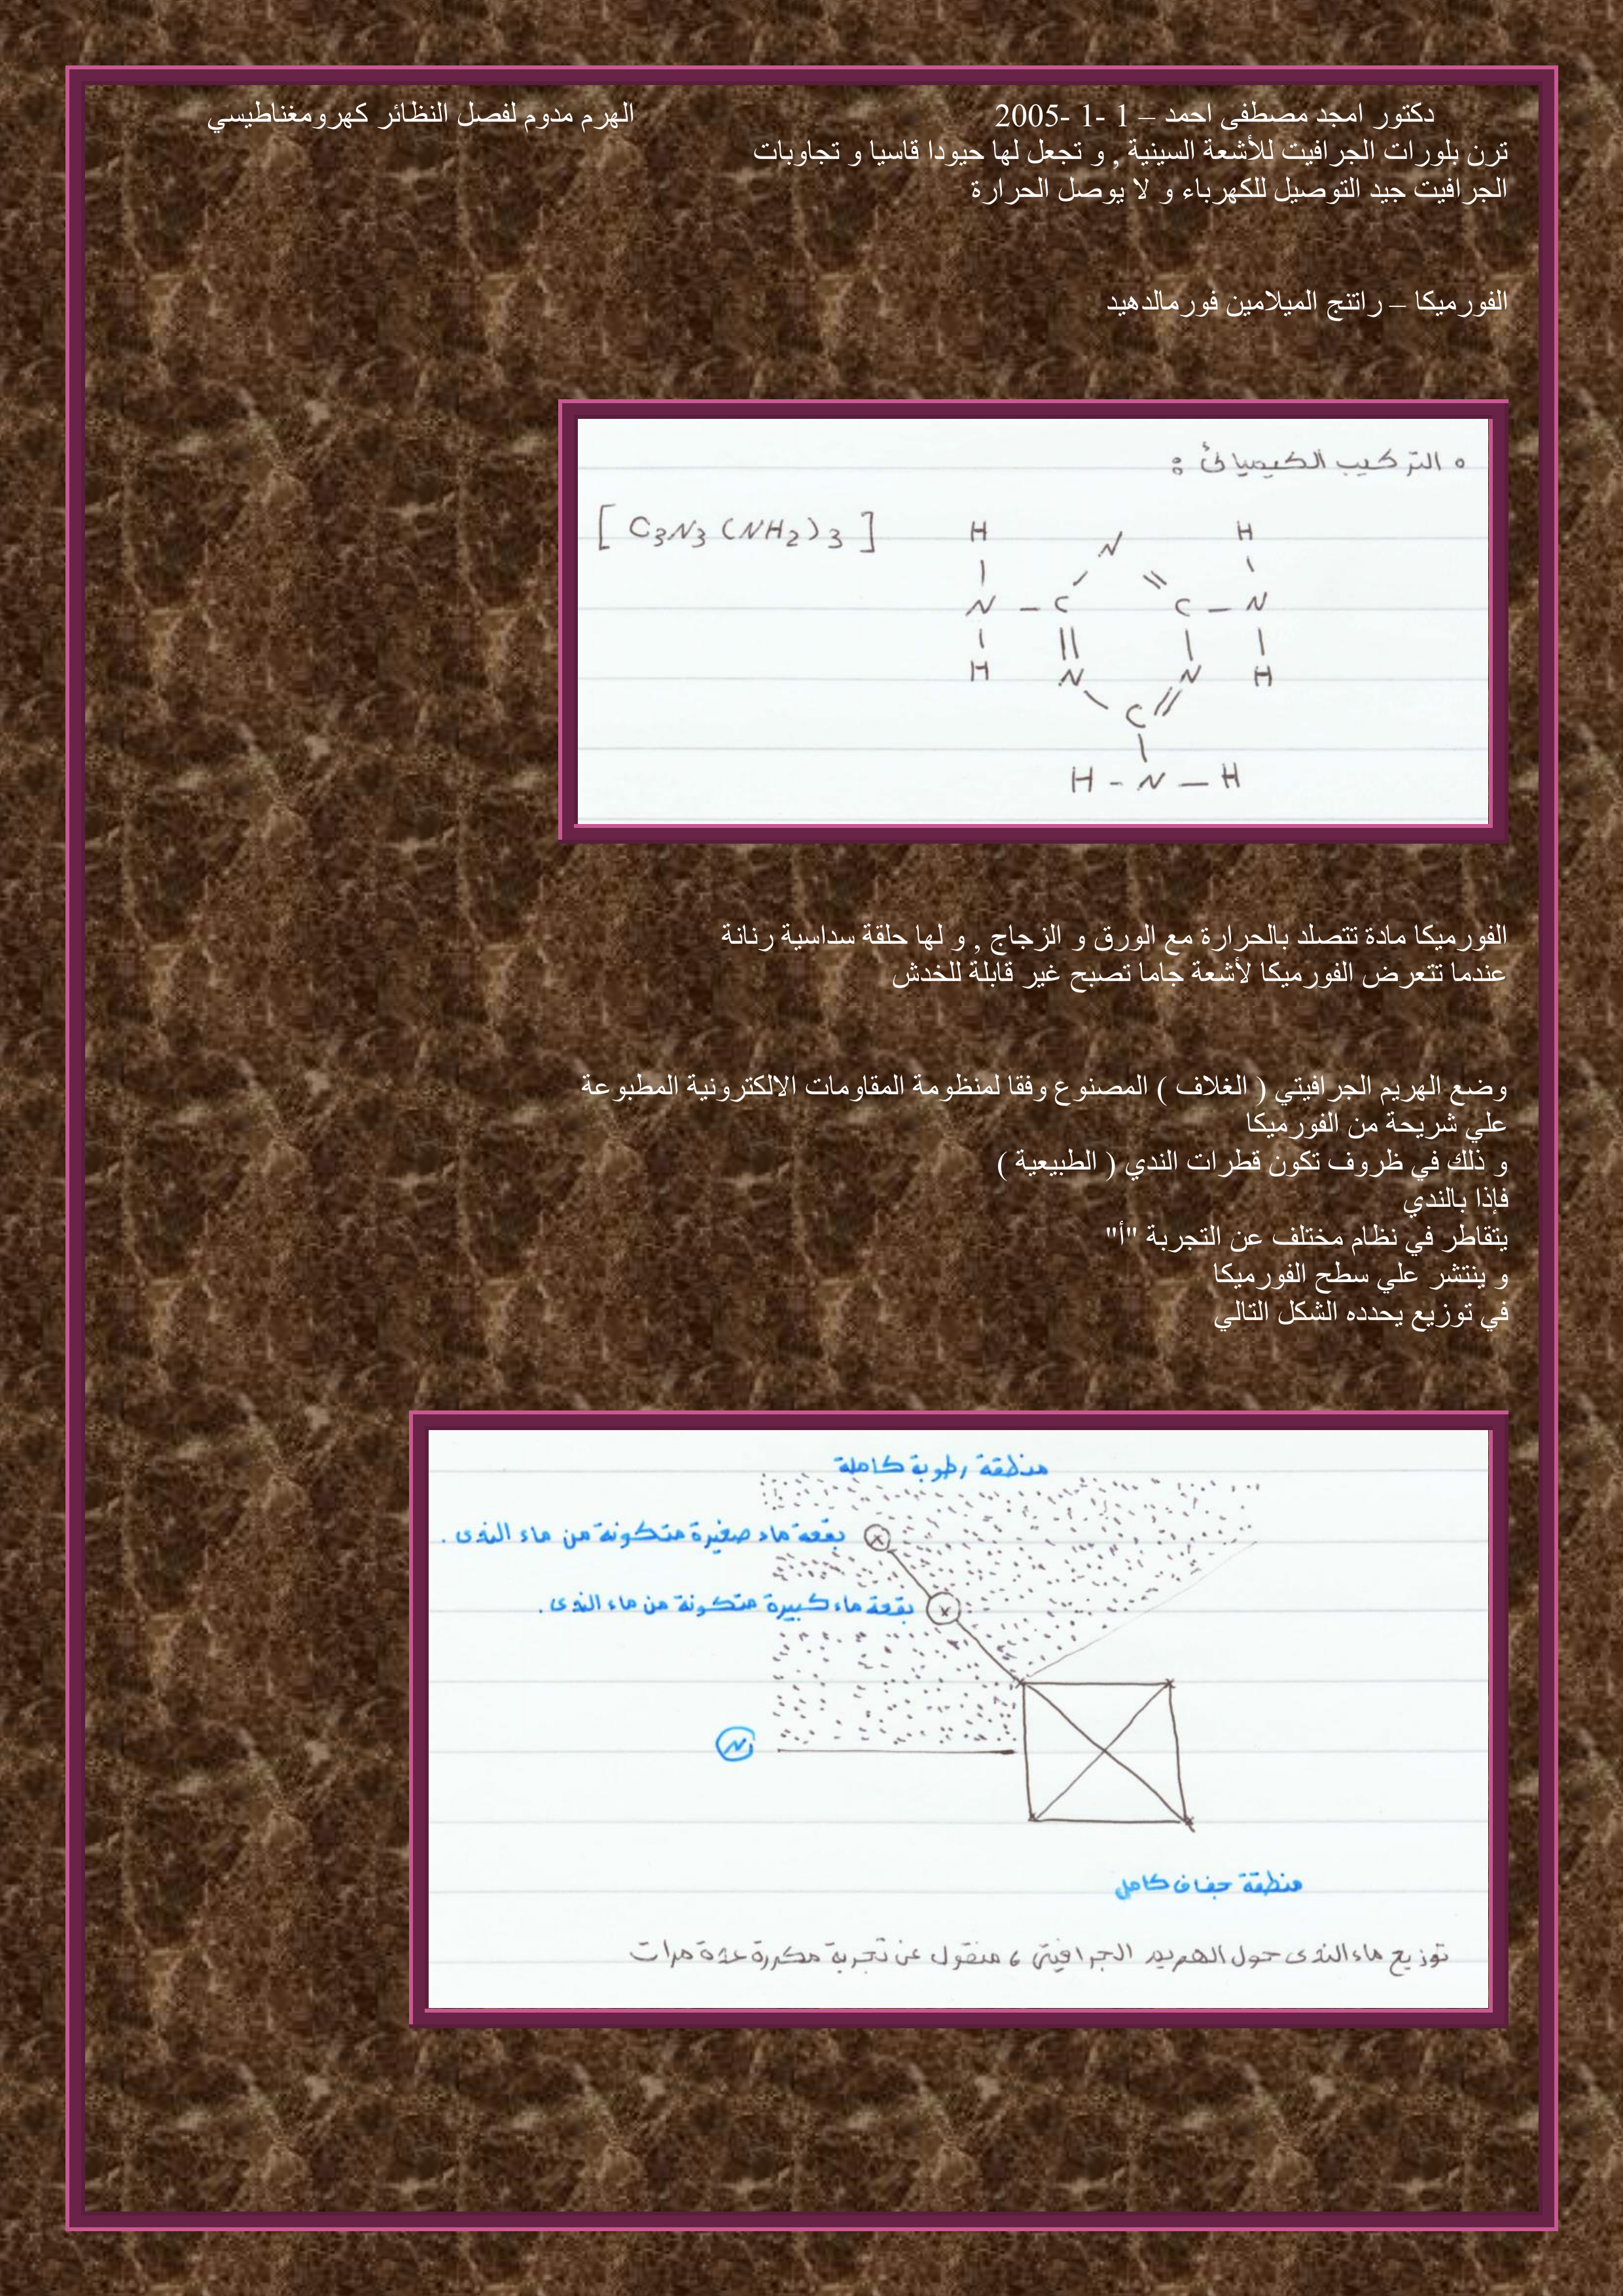 دكتور امجد مصطفى احمد – 1 -1 -2005 الهرم مدوم لفصل النظائر كهرومغناطيسي
ترن بلورات الجرافيت للأشعة السينية , و تجعل لها حيودا قاسيا و تجاوبات
الجرافيت جيد التوصيل للكهرباء و لا يوصل الحرارة
الفورميكا – راتنج الميلامين فورمالدهيد
التركيب الكيميائى :
[ C3N3 (NH2)3 ]
H N H
N – C C – N
H N N H
C
H – N – H
الفورميكا مادة تتصلد بالحرارة مع الورق و الزجاج , و لها حلقة سداسية رنانة
عندما تتعرض الفورميكا لأشعة جاما تصبح غير قابلة للخدش
وضع الهريم الجرافيتي ( الغلاف ) المصنوع وفقا لمنظومة المقاومات الالكترونية المطبوعة
علي شريحة من الفورميكا
و ذلك في ظروف تكون قطرات الندي ( الطبيعية )
فإذا بالندي
يتقاطر في نظام مختلف عن التجربة "أ"
و ينتشر علي سطح الفورميكا
في توزيع يحدده الشكل التالي
منطقة رطوبة كاملة
بقعة ماء صغيرة متكونة من ماء الندى .
بقعة ماء كبيرة متكونة من ماء الندى .
N
منطقة جفاف كامل
توزيع ماء الندى حول الهريم الجرافيتى ، منقول عن تجربة مكررة عدة مرات